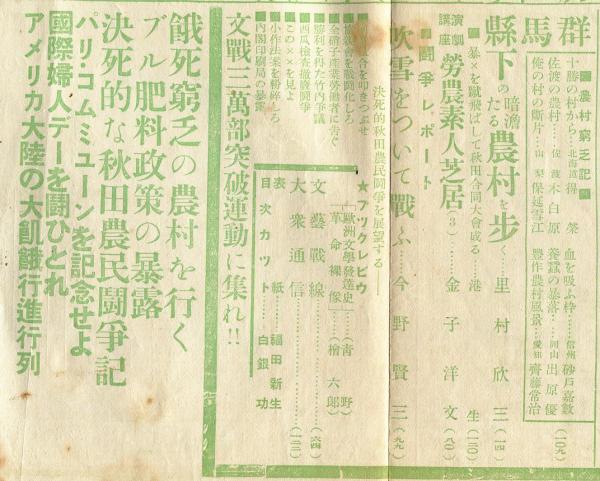 ■農村窮乏記■
十勝の村から…北海道 得 榮
佐渡の農村…佐渡 木白原
俺の村の斷片…山梨 保延雪江
血を吸ふ枠……信州 砂戸嘉數
養蠶の暴落……岡山 出原優
豐作農村風景…愛知 齊藤常治
(一〇九)
群馬縣下の暗澹たる農村を步く…里村欣三(一四)
■暴×を蹴飛ばして秋田合同大會成る……港 生(一三〇)
演劇講座 勞農素人芝居(3)……金子洋文(八〇)
■鬪爭レポート
吹雪をついて戰ふ……今野賢三(九九)
決死的秋田農民鬪爭を展望する――
勝利を得た竹內爭議
西瓜檢査撤廢鬪爭
この××を見よ
小作法案を粉碎しろ
內閣印刷局の暴露
★ブックレビウ
「歐洲文學發達史」(靑野)
「革命裸像」(檜六郞)
文藝戰線
大衆通信
(六四)
(一三三)
表紙……福田新生
目次カット……白銀功
文戰三萬部突破運動に集れ!!
餓死窮乏の農村を行く
ブル肥料政策の暴露
決死的な秋田農民鬪爭記
パリ・コムミューンを記念せよ
國際婦人デーを鬪ひとれ
アメリカ大陸の大飢餓行進行列